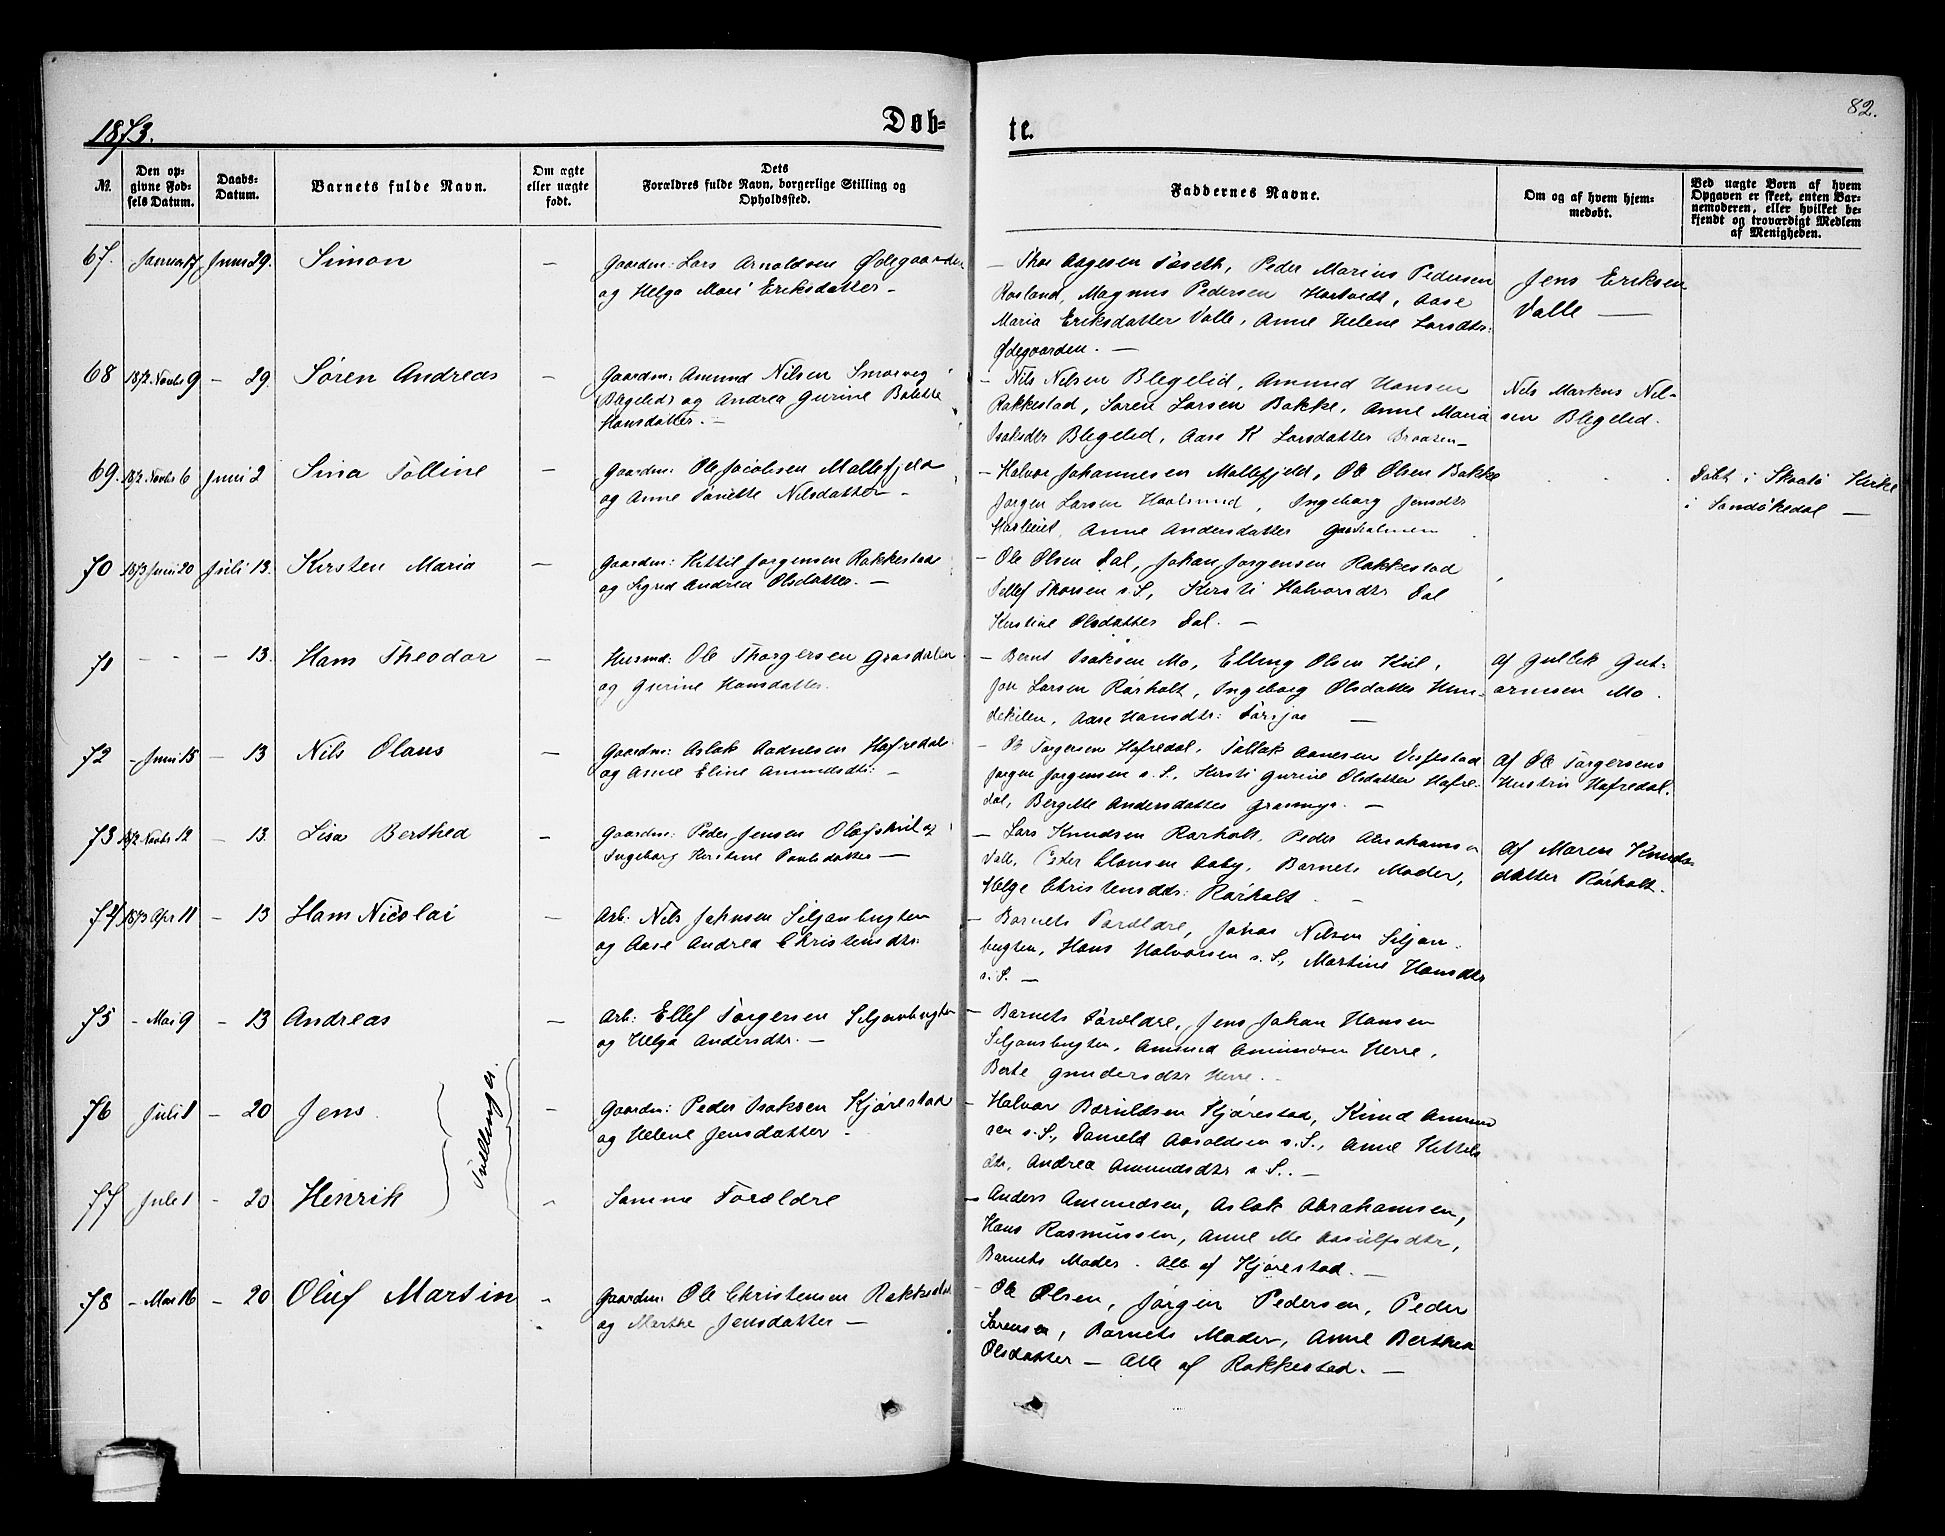 82.
1873.
Døb=
te.
No.
Den opgivne Fødsels Datum.
Daabs-Datum.
Barnets fulde Navn.
Om ægte eller uægte født.
Dets Forældres fulde Navn, borgerlige Stilling og Opholdssted.
Faddernes Navne.
Om og af hvem hjemmedøbt.
Ved uægte Børn af hvem Opgaven er skeet, enten Barnemoderen, eller hvilket bekjendt og troværdigt Medlem af Menigheden.
67. Januar 17 Juni 29. Simon —
Gaardm: Lars Arnoldsen Ødegaarden
og Helga Mari Eriksdatter —
— Thor Aagesen Tøseth, Peder Marius Pedersen
Rosland, Magnus Pedersen Hartvedt, Aase
Maria Eriksdatter Valle, Anne Helene Larsdtr:
Ødegaarden. —
Jens Eriksen
Valle —
68 1872 Novbr 9 — 29. Søren Andreas —
Gaardm: Amund Nilsen Smørveg
Blegelid og Andrea Gurine Bolette
Hansdatter. —
— Nils Nilsen Blegelid, Amund Hansen
Rakkestad, Søren Larsen Bakke, Anne Maria
Isaksdtr Blegelid, Aase K Larsdatter Braaten —
Nils Markus Nil-
sen Blegelid.
69. 1872 Novbr 6 Juni 2 Sina Talline —
Gaardm: Ole Jacobsen Mallefjeld
og Anne Tonette Nilsdatter —
— Halvor Johannesen Mallefjeld, Ole Olsen Bakke
Jørgen Larsen Haalsund, Ingeborg Jensdtr
Anne Andersdatter
Døbt i Skaatø Kirke
i Sandøkedal —
70 1873 Juni 20 Juli 13. Kirsten Maria —
Gaardm: Kittil Jørgensen Rakkestad
og Sigrid Andrea Olsdatter. —
— Ole Olsen Dal, Johan Jørgensen Rakkestad
Tellef Thorsen s. S., Kirsti Halvorsdtr Dal
Kirstine Olsdatter Dal. —
71 - - — 13. Hans Theodor —
Husmd: Ole Thorgersen Grasdalen
og Gurine Hansdatter.
— Bernt Isaksen Mo, Elling Olsen Kiil,
Jon Larsen Rørholt, Ingeborg Olsdatter Hun-
dekilen, Aase Hansdtr: Torsjøe —
af Gullik Gut-
ormsen Mo.
72 — Juni 15 — 13 Nils Olaus —
Gaardm: Aslak Aadnesen Hafredal
og Anne Eline Amundsdtr: —
— Ole Torgersen Hafredal, Tallak Aanesen Vefelstad
Jørgen Jørgensen s. S., Kirsti Gurine Olsdatter Hafre-
dal, Bergitte Andersdatter Grasmyr. —
af Ole Torgersens
Hustru Hafredal.
73 1872 Novbr 12 — 13. Lisa Berthea —
Gaardm: Peder Jensen Olafskiil og
Ingeborg Kirstine Poulsdatter —
— Lars Knudsen Rørholt, Peder Abrahamsen
Valle, Peder Clausen Aaby, Barnets Moder,
Helge Christensdtr: Rørholt. —
af Maren Knuds-
datter Rørholt.
74 1873 Apr 11 — 13 Hans Nicolai —
Arb: Nils Johnsen Siljanbugten
og Aase Andrea Christensdtr:
— Barnets Forældre, Johan Nilsen Siljan-
bugten, Hans Halvorsen s. S., Martine Hansdtr
s. S. —
75 — Mai 9 — 13 Andreas —
Arb: Ellef Torgersen Siljanbugten
og Helga Andersdtr. —
— Barnets Forældre, Jens Johan Hansen
Siljansbugten, Amund Amundsen Herre,
Berte Gundersdtr Herre. —
76 Juli 1 — 20 Jens
Tvillinger.
Gaardm: Peder Isaksen Kjørestad
og Helene Jensdatter —
— Halvor Børuldsen Kjørestad, Knud Amund-
sen s. S., Daneld Aasoldsen s. S., Anne Kittils
dtr, Andrea Amundsdtr s. S. —
77 Juli 1 — 20 Henrik
Samme Forældre
— Anders Amundsen, Aslak Abrahamsen,
Hans Rasmussen, Anne Me Aasulfsdtr,
Barnets Moder. Alle af Kjørestad. —
78 — Mai 16 — 20 Oluf Martin
Gaardm: Ole Christensen Rakkestad
og Marthe Jensdatter —
— Ole Olsen, Jørgen Pedersen, Peder
Sørensen, Barnets Moder, Anne Berthea
Olsdatter — Alle af Rakkestad. —